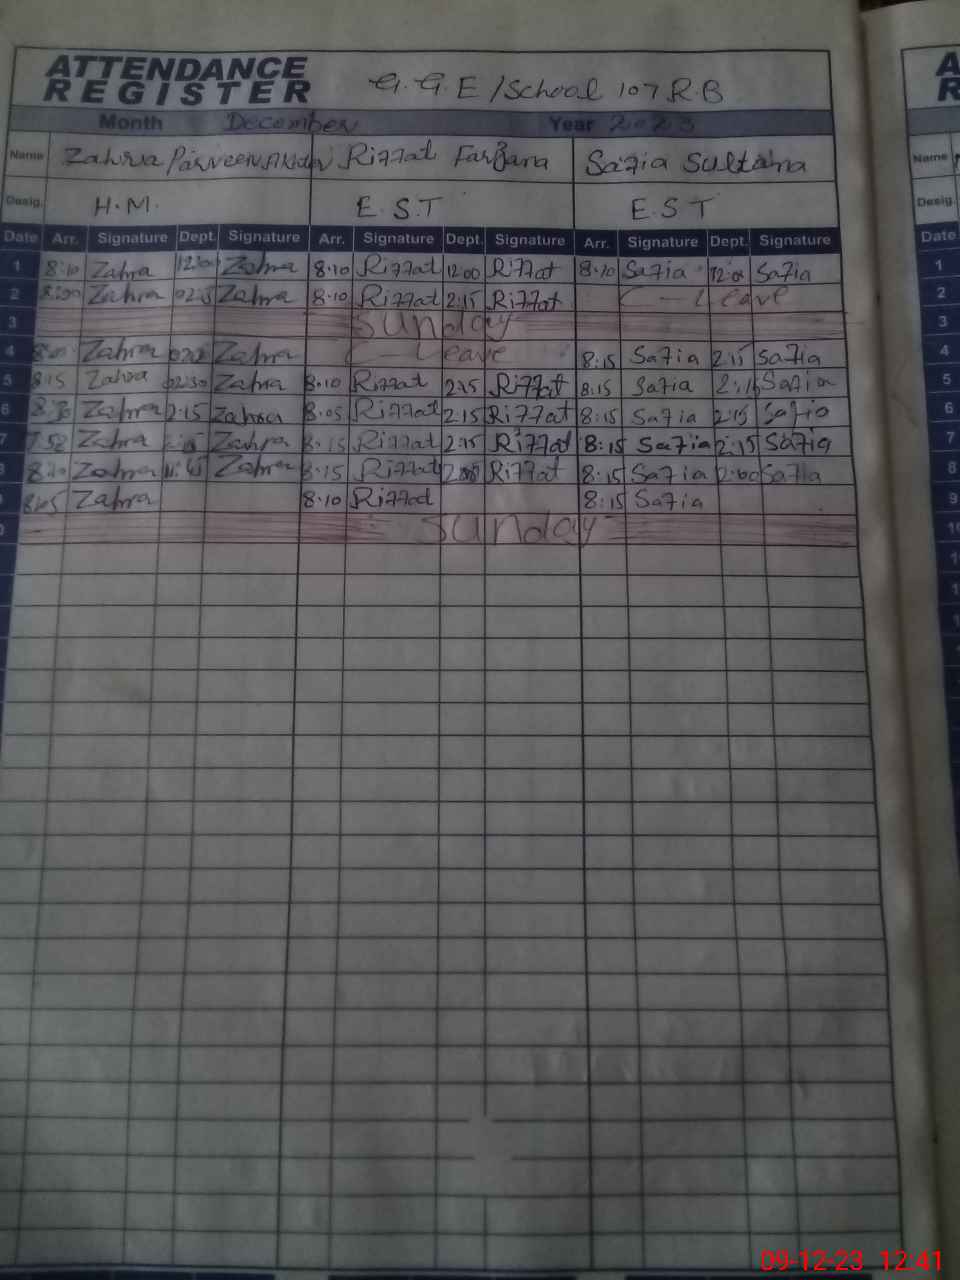 ATTENDANCE
REGISTER G.G.E/School 107 R.B
Month December Year 2023
Name Zahra Parveen Akhter Rizzat Farzana Sazia Sultana
Desig. H.M. E.S.T E.S.T
Date Arr. Signature Dept. Signature Arr. Signature Dept. Signature Arr. Signature Dept. Signature
1 8:10 Zahra 12:00 Zahra 8.10 Rizzat 12.00 Rizzat 8.10 Sazia 12:00 Sazia
2 8:00 Zahra Zahra 8.10 Rizzat 2:15 Rizzat C - Leave
3 Sunday
4 Zahra Zahra C - Leave 8:15 Sazia 2:15 Sazia
5 8:15 Zahra 02:30 Zahra 8.10 Rizzat 2:15 Rizzat 8:15 Sazia 2:15 Sazia
6 8:30 Zahra 2:15 Zahra 8.05 Rizzat 2:15 Rizzat 8:15 Sazia 2:15 Sazia
7 7.58 Zahra Zahra 8.15 Rizzat 2:15 Rizzat 8:15 Sazia 2:15 Sazia
8 Zahra Zahra 8.15 Rizzat Rizzat 8:15 Sazia 2:00 Sazia
8:05 Zahra 8.10 Rizzat 8:15 Sazia
Sunday
A
R
Name
Desig.
Date
1
2
3
4
5
6
7
8
9
10
09-12-23 12:41